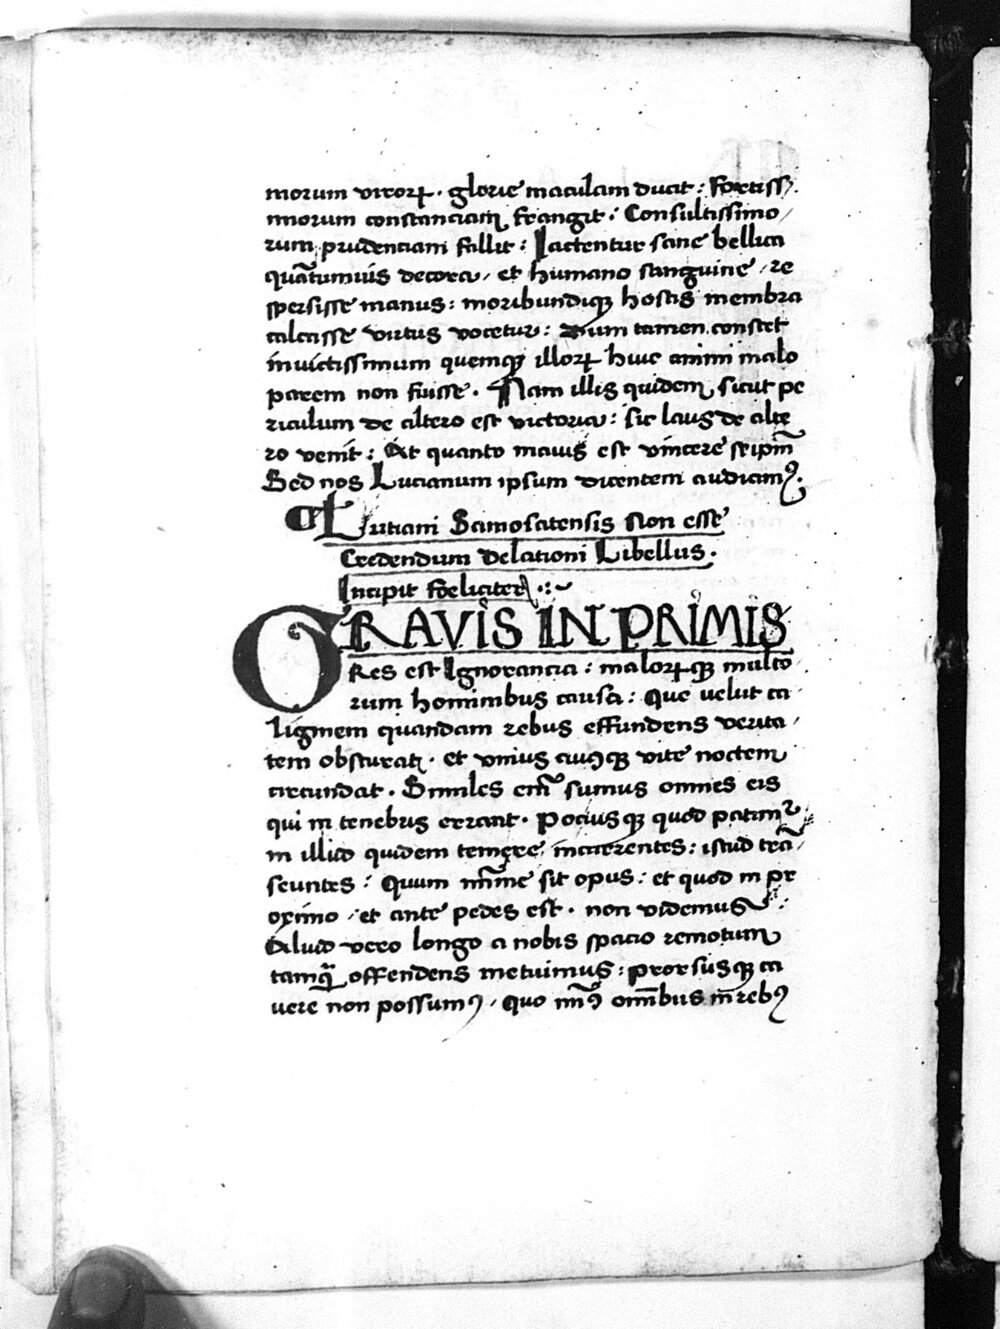 morum viroꝝ · glorie maculam ducit : fortiss
morum constanciam frangit : Consultissimo
rum prudenciam fallit : Iactentur sane bellica
quātumuis decora / et humano sanguine / re
spersisse manus : moribundiqꝫ hostis membra
calcasse virtus vocetur : dum tamen constet
invictissimum quemqꝫ illoꝝ huic animi malo
parem non fuisse . Nam illis quidem sicut pe
riculum de altero est victoria : sic laus de alte
ro venit : At quanto maius est vincere seip̄m
Sed nos Lucianum ipsum dicentem audiamꝰ.
Lutiani Samosatensis Non esse
Credendum delationi Libellus .
Incipit foeliciter .:~
GRAVIS IN PRIMIS
RES est Ignorancia : maloꝝqꝫ multo
rum hominibus causa : Que velut ca
liginem quandam rebus effundens verita
tem obscurat . et vnius cuiꝰqꝫ vite noctem
circundat . Similes em̄ sumus omnes eis
qui in tenebris errant . Pociusqꝫ quod patimᷣ
in illud quidem temere incurrentes : istud trā
seuntes : Quum mīme sit opus : et quod in pr
oximo / et ante pedes est . non videmus :
Aliud vero longo a nobis spacio remotum
tamqᷓ offendens metuimus : prorsusqꝫ ca
uere non possumꝰ . Quo mīꝰ om̄ibus in rebꝰ